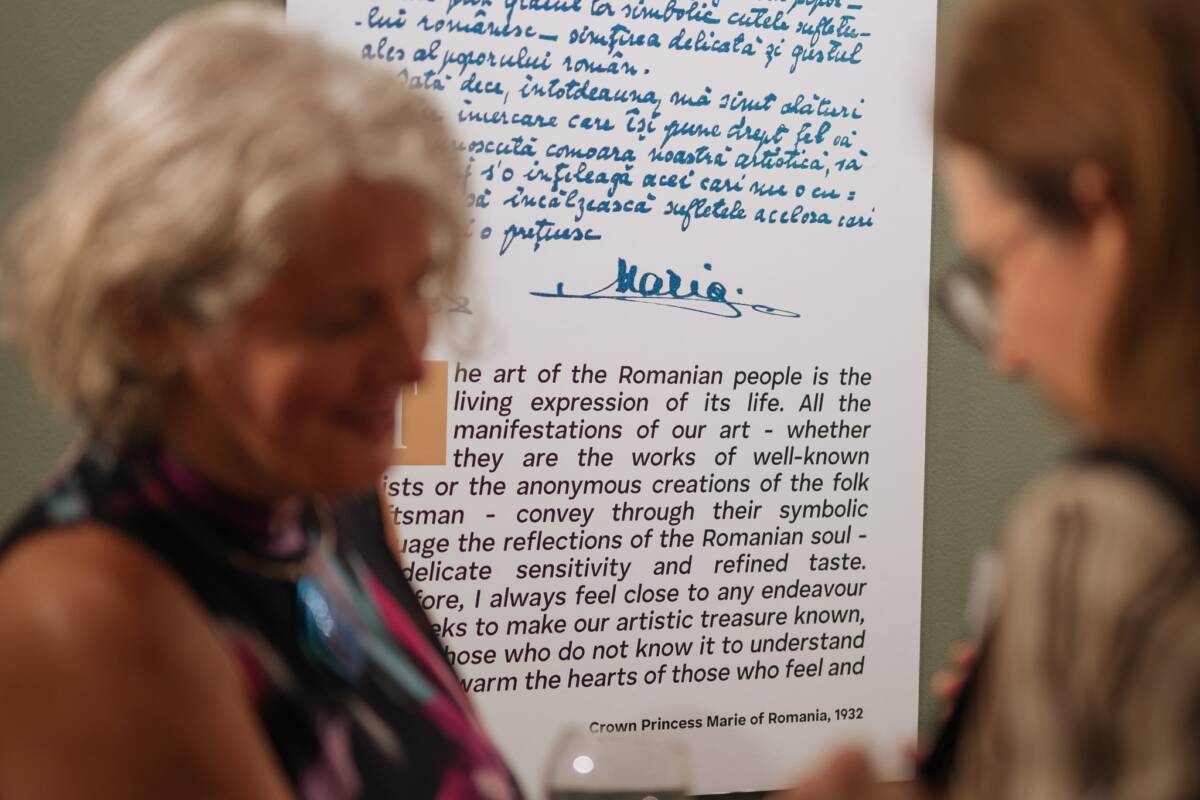 prin graiul lor simbolic cutele sufletu-
-lui românesc — simțirea delicată și gustul
ales al poporului român.
Iată dece, întotdeauna, mă simt alături
încercare care își pune drept fel să
cunoscută comoara noastră artistică, să
s'o înțeleagă acei cari nu o cu=
să încălzească sufletele acelora cari
o prețuiesc
Maria
The art of the Romanian people is the
living expression of its life. All the
manifestations of our art - whether
they are the works of well-known
ists or the anonymous creations of the folk
tsman - convey through their symbolic
uage the reflections of the Romanian soul -
delicate sensitivity and refined taste.
fore, I always feel close to any endeavour
eks to make our artistic treasure known,
hose who do not know it to understand
warm the hearts of those who feel and
Crown Princess Marie of Romania, 1932